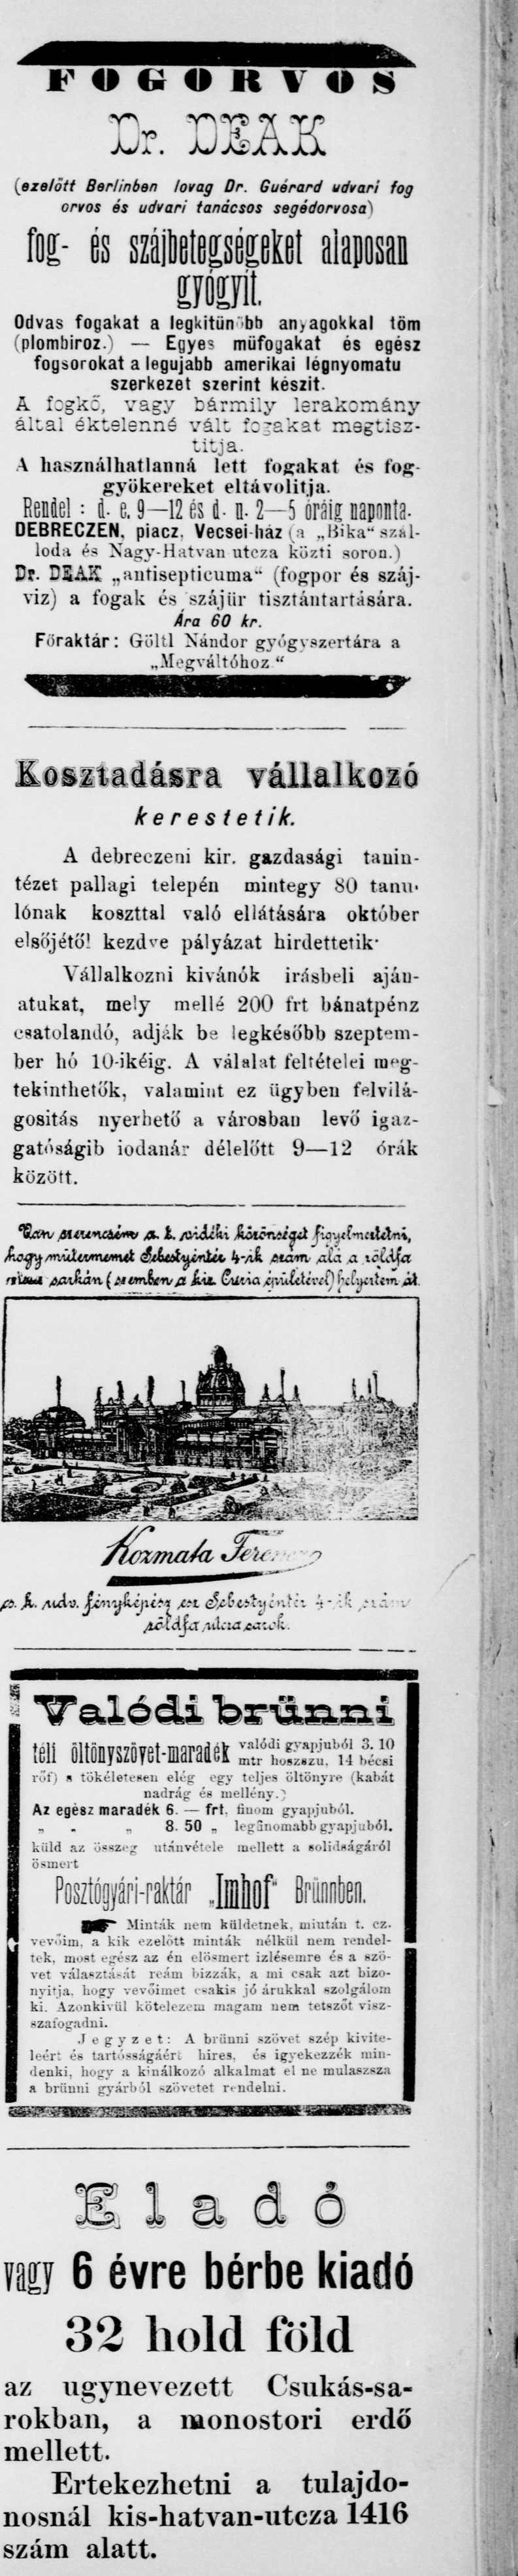 FOGORVOS
Dr. DEÁK
(ezelőtt Berlinben lovag Dr. Guérard udvari fog
orvos és udvari tanácsos segédorvosa)
fog- és szájbetegségeket alaposan
gyógyit.
Odvas fogakat a legkitünőbb anyagokkal töm
(plombiroz.) — Egyes müfogakat és egész
fogsorokat a legujabb amerikai légnyomatu
szerkezet szerint készit.
A fogkő, vagy bármily lerakomány
által éktelenné vált fogakat megtisz-
titja.
A használhatlanná lett fogakat és fog-
gyökereket eltávolitja.
Rendel: d. e. 9—12 és d. u. 2—5 óráig naponta.
DEBRECZEN, piacz, Vecsei-ház (a „Bika“ szál-
loda és Nagy-Hatvan utcza közti soron.)
Dr. DEÁK „antisepticuma“ (fogpor és száj-
viz) a fogak és szájür tisztántartására.
Ára 60 kr.
Főraktár: Göltl Nándor gyógyszertára a
„Megváltóhoz.“
Kosztadásra vállalkozó
kerestetik.
A debreczeni kir. gazdasági tanin-
tézet pallagi telepén mintegy 80 tanu-
lónak koszttal való ellátására október
elsőjétől kezdve pályázat hirdettetik.
Vállalkozni kivánók irásbeli aján-
atukat, mely mellé 200 frt bánatpénz
csatolandó, adják be legkésőbb szeptem-
ber hó 10-ikéig. A válalat feltételei meg-
tekinthetők, valamint ez ügyben felvilá-
gositás nyerhető a városban levő igaz-
gatóságib iodanár délelőtt 9—12 órák
között.
Van szerencsém a t. vidéki közönséget figyelmeztetni,
hogy műtermemet Sebestyéntér 4-ik szám alá a zöldfa
utcza sarkán (szemben a kir. Curia épületével) helyeztem át.
Kozmata Ferencz
cs. k. udv. fényképész Sebestyéntér 4-ik szám
zöldfa utcza sarok.
Valódi brünni
téli öltönyszövet-maradék valódi gyapjuból 3.10
mtr hosszu, 14 bécsi
rőf) s tökéletesen elég egy teljes öltönyre (kabát
nadrág és mellény.)
Az egész maradék 6. — frt. finom gyapjuból.
„ „ „ 8. 50 „ legfinomabb gyapjuból.
küld az összeg utánvétele mellett a solidságáról
ösmert
Posztógyári-raktár „Imhof“ Brünnben.
Minták nem küldetnek, miután t. cz.
vevőim, a kik ezelőtt minták nélkül nem rendel-
tek, most egész az én elösmert izlésemre és a szö-
vet választását reám bizzák, a mi csak azt bizo-
nyitja, hogy vevőimet csakis jó árukkal szolgálom
ki. Azonkivül kötelezem magam nem tetszőt visz-
szafogadni.
Jegyzet: A brünni szövet szép kivite-
leért és tartósságáért hires, és igyekezzék min-
denki, hogy a kinálkozó alkalmat el ne mulaszsza
a brünni gyárból szövetet rendelni.
Eladó
vagy 6 évre bérbe kiadó
32 hold föld
az ugynevezett Csukás-sa-
rokban, a monostori erdő
mellett.
Ertekezhetni a tulajdo-
nosnál kis-hatvan-utcza 1416
szám alatt.